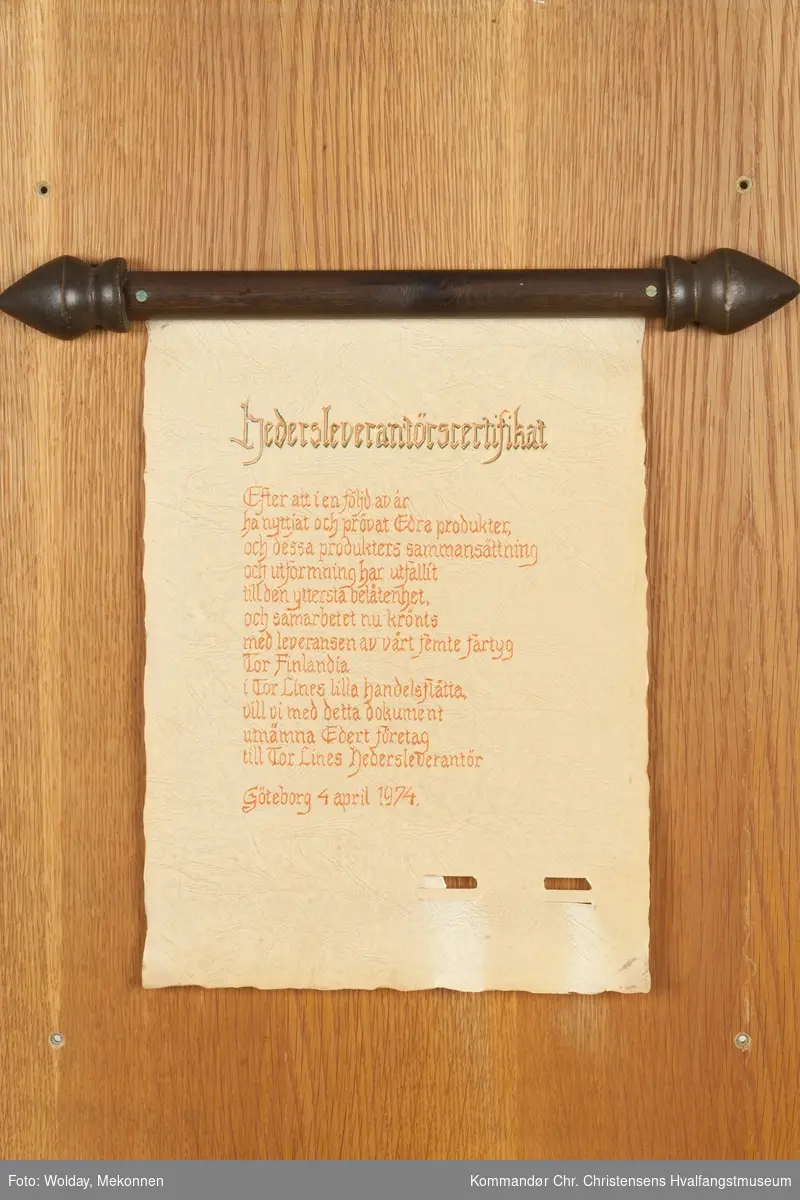 Hedersleverantörscertifikat
Efter att i en följd av år
ha nyttjat och prövat Edra produkter,
och dessa produkters sammansättning
och utformning har utfallit
till den yttersta belåtenhet,
och samarbetet nu krönts
med leveransen av vårt femte fartyg
Tor Finlandia
i Tor Lines lilla handelsflåtta,
vill vi med detta dokument
utnämna Edert företag
till Tor Lines Hedersleverantör
Göteborg 4 april 1974.
Foto: Wolday, Mekonnen
Kommandør Chr. Christensens Hvalfangstmuseum